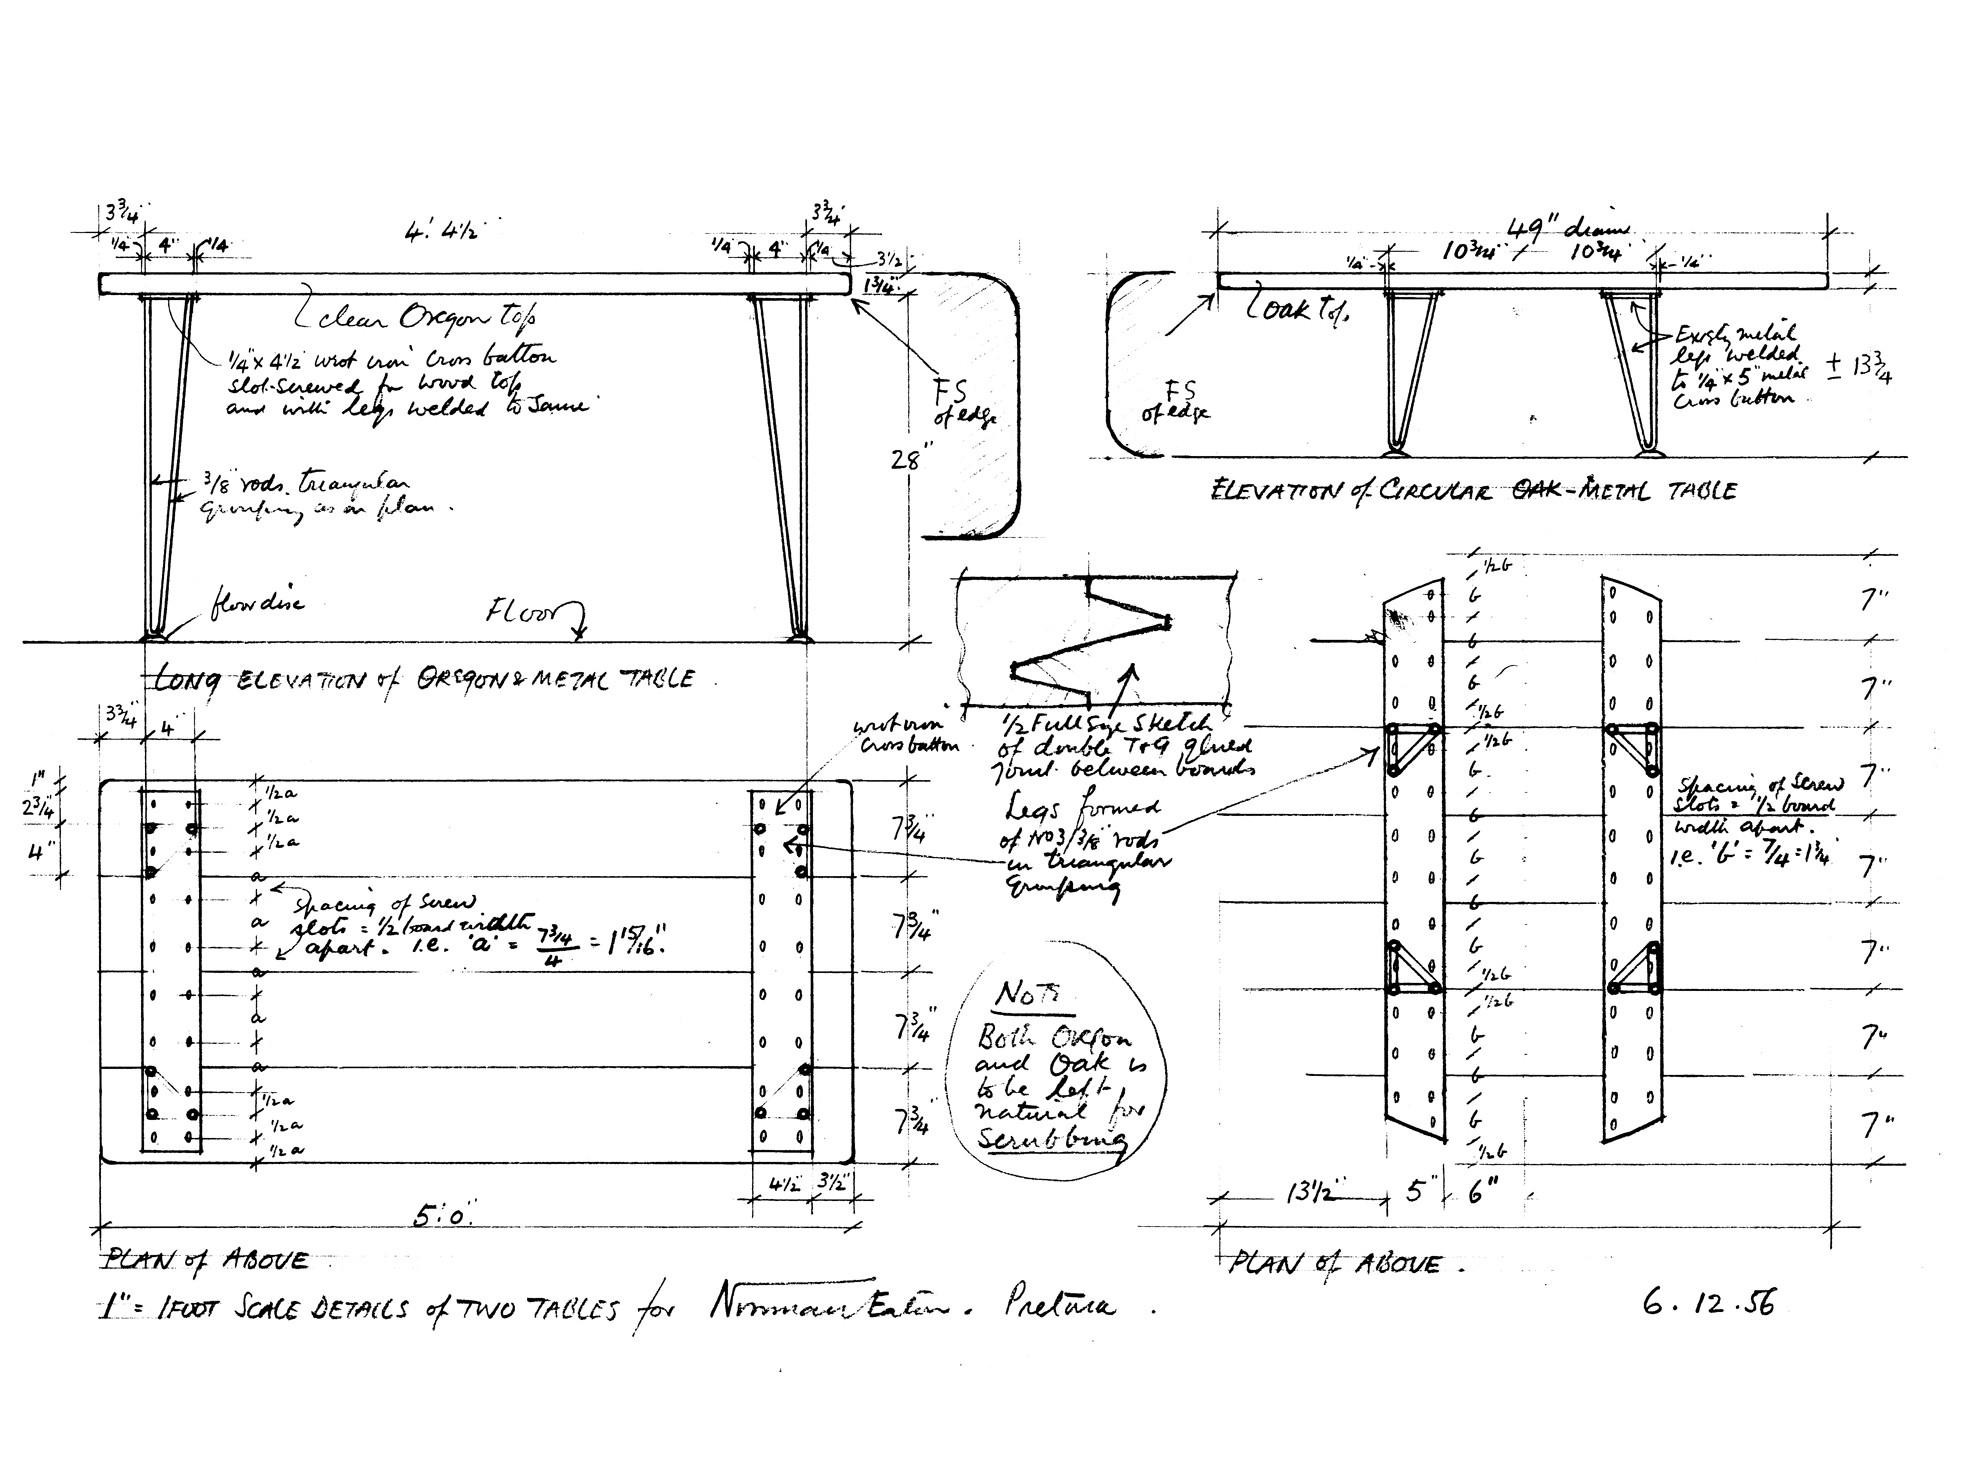 3 3/4"
4'. 4 1/2"
3 3/4"
1/4" 4" 1/4
1/4" 4" 1/4
3 1/2
1 3/4"
clear Oregon top
1/4" x 4 1/2 wrot iron cross batton
slot-screwed for wood top
and with legs welded to same
3/8 rods. triangular
grouping as on plan.
floor disc
FLOOR
28"
FS
of edge
LONG ELEVATION of OREGON & METAL TABLE
49" diam
10 3/4" / 10 3/4"
1/4"
1/4"
Oak top.
FS
of edge
metal
legs welded
to 1/4" x 5" metal
cross batton
± 13 3/4
ELEVATION of CIRCULAR OAK-METAL TABLE
1/2 Full Size Sketch
of double T&G glued
joint between boards
wrot iron
cross batton
Legs formed
of No 3/3/8" rods
in triangular
grouping
3 3/4"
4"
1"
2 3/4"
4"
1/2 a
1/2 a
1/2 a
a
a
a
a
a
1/2 a
1/2 a
1/2 a
Spacing of screw
slots = 1/2 board width
apart. i.e. 'a' = 7 3/4 / 4 = 1 15/16".
7 3/4"
7 3/4"
7 3/4"
7 3/4"
4 1/2" 3 1/2"
5'. 0"
PLAN of ABOVE
NOTE
Both Oregon
and Oak is
to be left
natural for
scrubbing
1/2 b
b
b
b
1/2 b
1/2 b
b
b
b
b
b
b
1/2 b
1/2 b
b
b
b
1/2 b
7"
7"
7"
7"
7"
7"
7"
Spacing of Screw
slots = 1/2 board
width apart.
i.e. 'b' = 7/4 = 1 3/4"
13 1/2" 5" 6"
PLAN of ABOVE.
1" = 1 FOOT SCALE DETAILS of TWO TABLES for Norman Eaton. Pretoria.
6.12.56